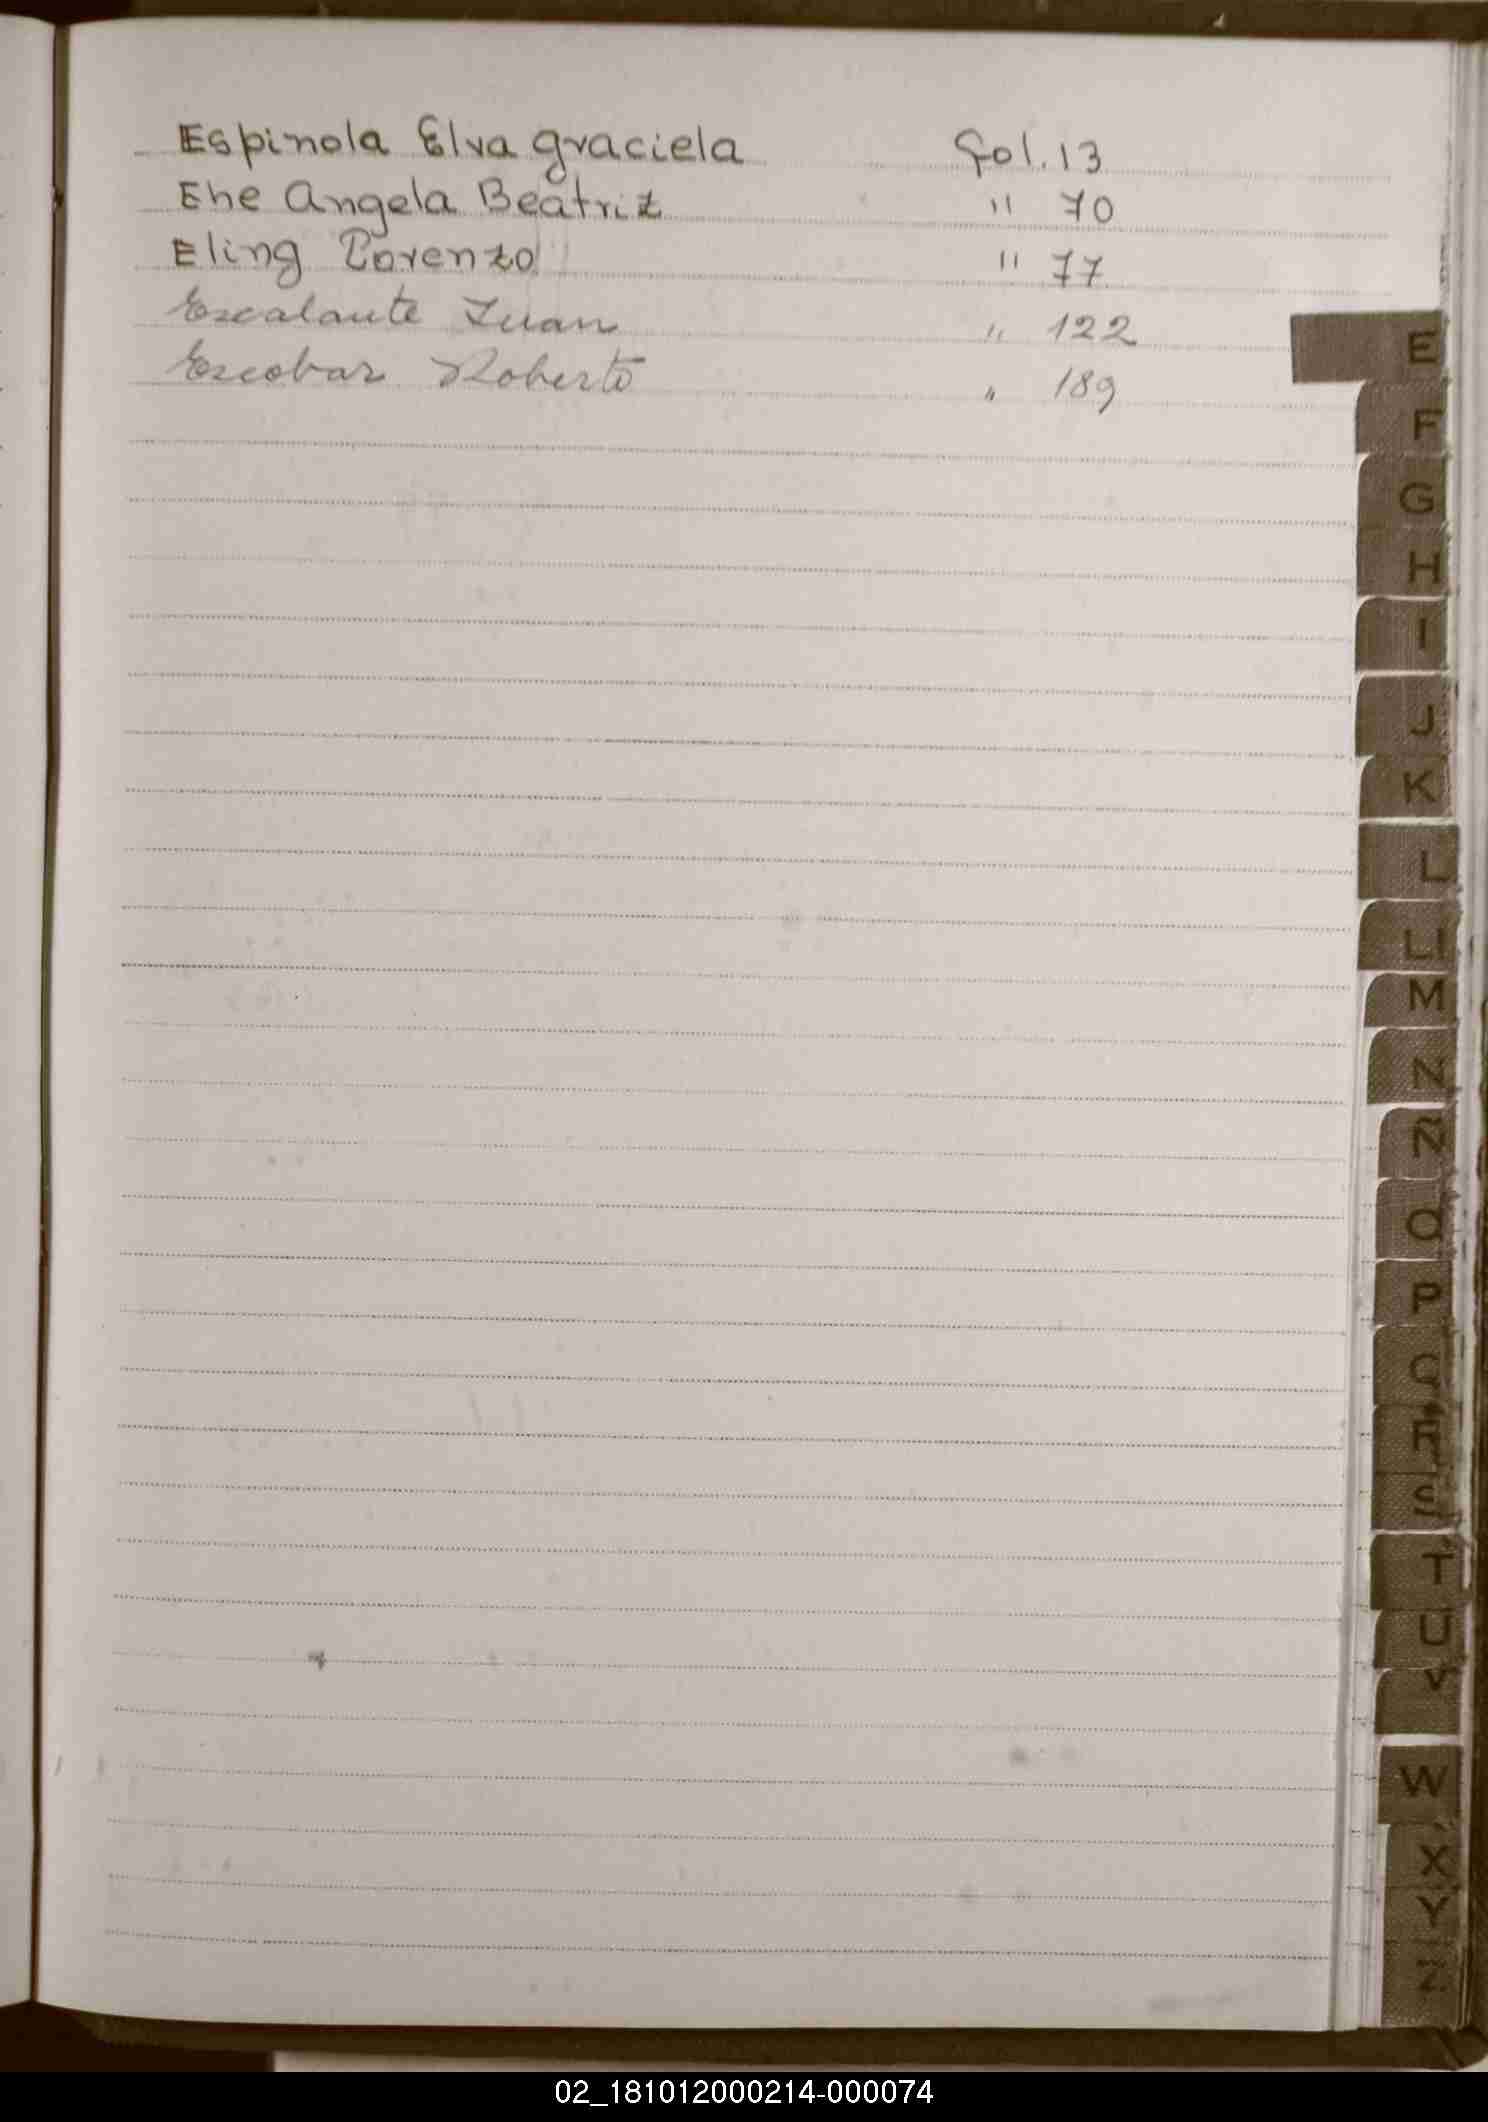 Espinola Elva Graciela Fol. 13
Ehe Angela Beatriz " 70
Eling Lorenzo " 77
Escalante Juan " 122
Escobar Roberto " 189
E
F
G
H
I
J
K
L
Ll
M
N
Ñ
O
P
Q
R
S
T
U
V
W
X
Y
Z
02_181012000214-000074